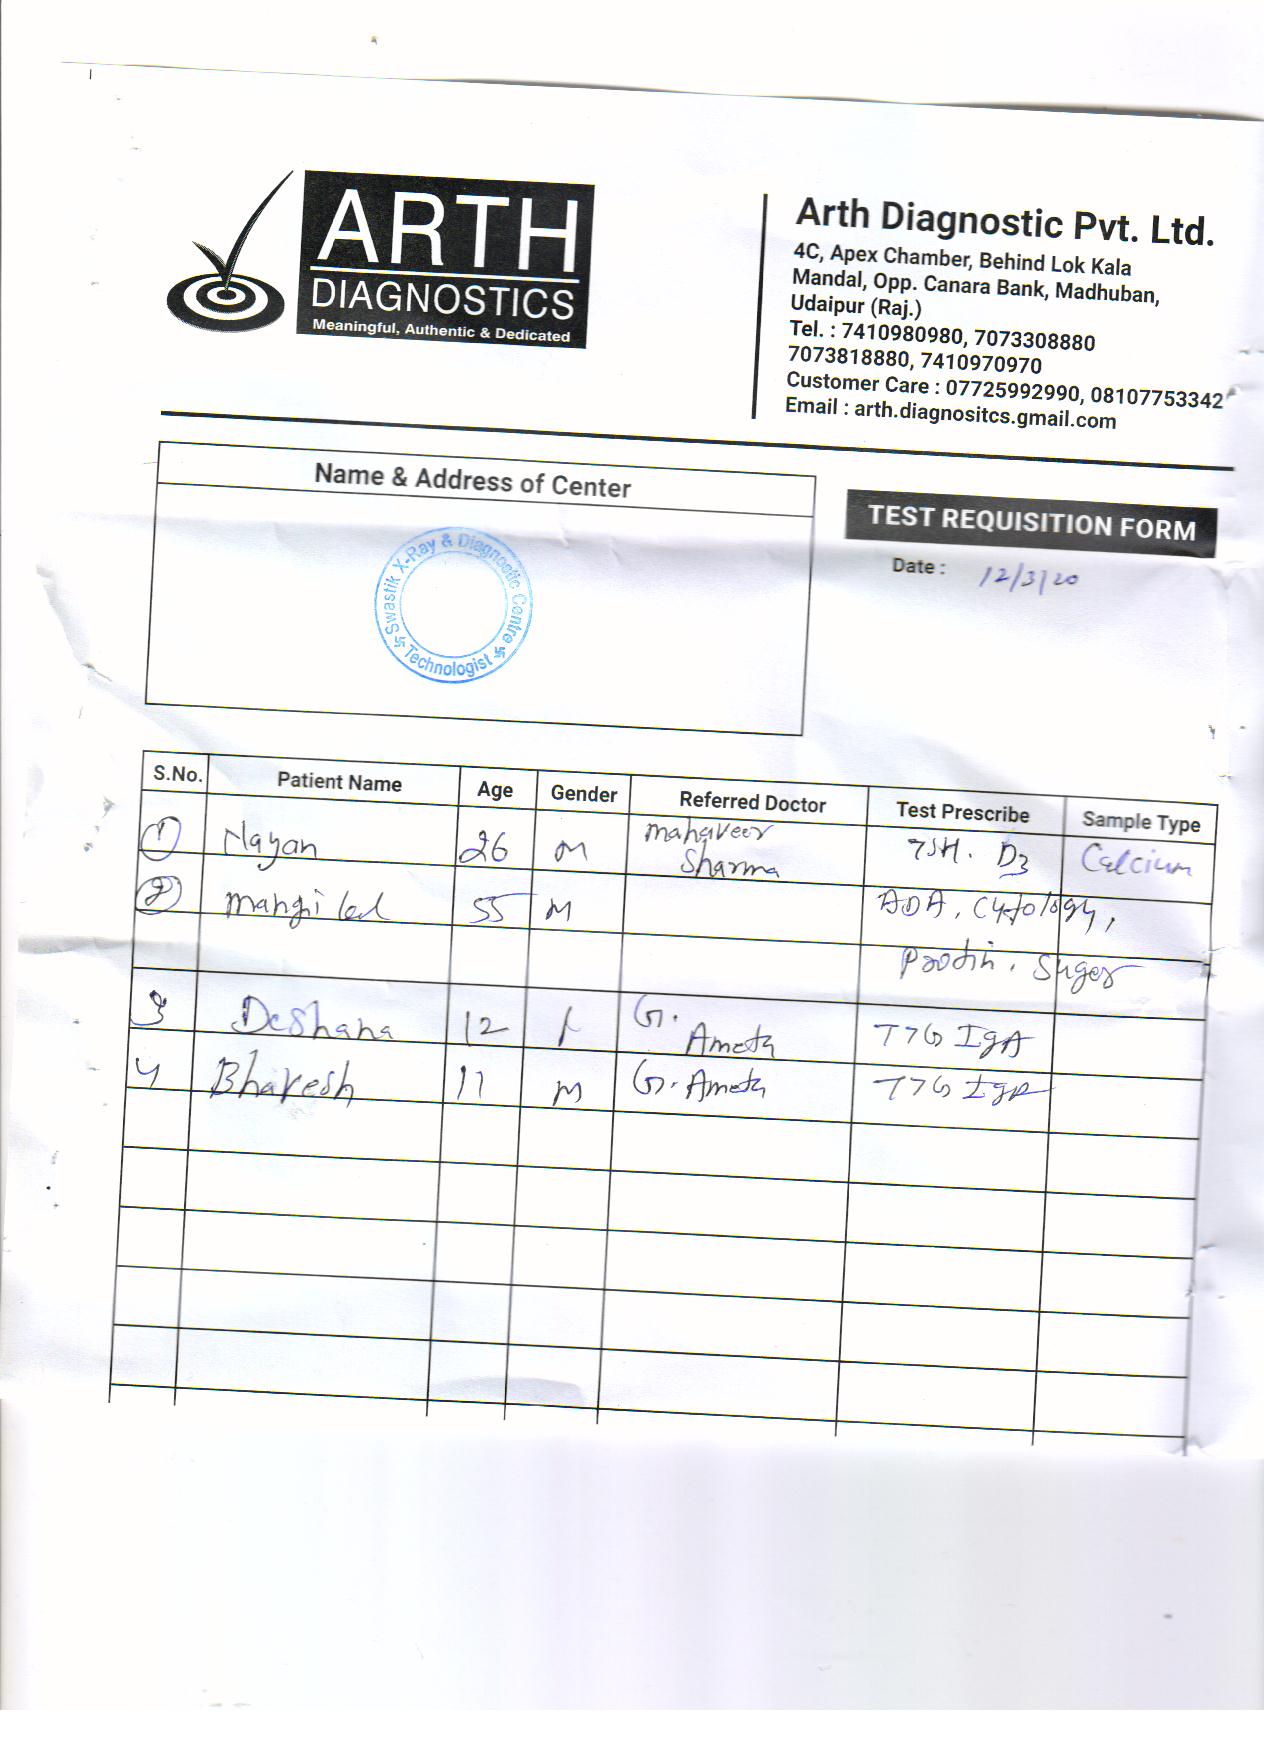 ARTH
DIAGNOSTICS
Meaningful, Authentic & Dedicated
Arth Diagnostic Pvt. Ltd.
4C, Apex Chamber, Behind Lok Kala
Mandal, Opp. Canara Bank, Madhuban,
Udaipur (Raj.)
Tel. : 7410980980, 7073308880
7073818880, 7410970970
Customer Care : 07725992990, 08107753342
Email : arth.diagnositcs.gmail.com
Name & Address of Center
Swastik X-Ray & Diagnostic Centre
Technologist
TEST REQUISITION FORM
Date : 12/3/20
S.No. Patient Name Age Gender Referred Doctor Test Prescribe Sample Type
1 Nayan 26 M Mahaveer Sharma TSH. D3 Calcium
2 Mangi lal 55 M ADA, Cytology,
Protin, Suger
3 Deshana 12 f G. Ameta TTG IgA
4 Bhavesh 11 M G. Ameta TTG IgA